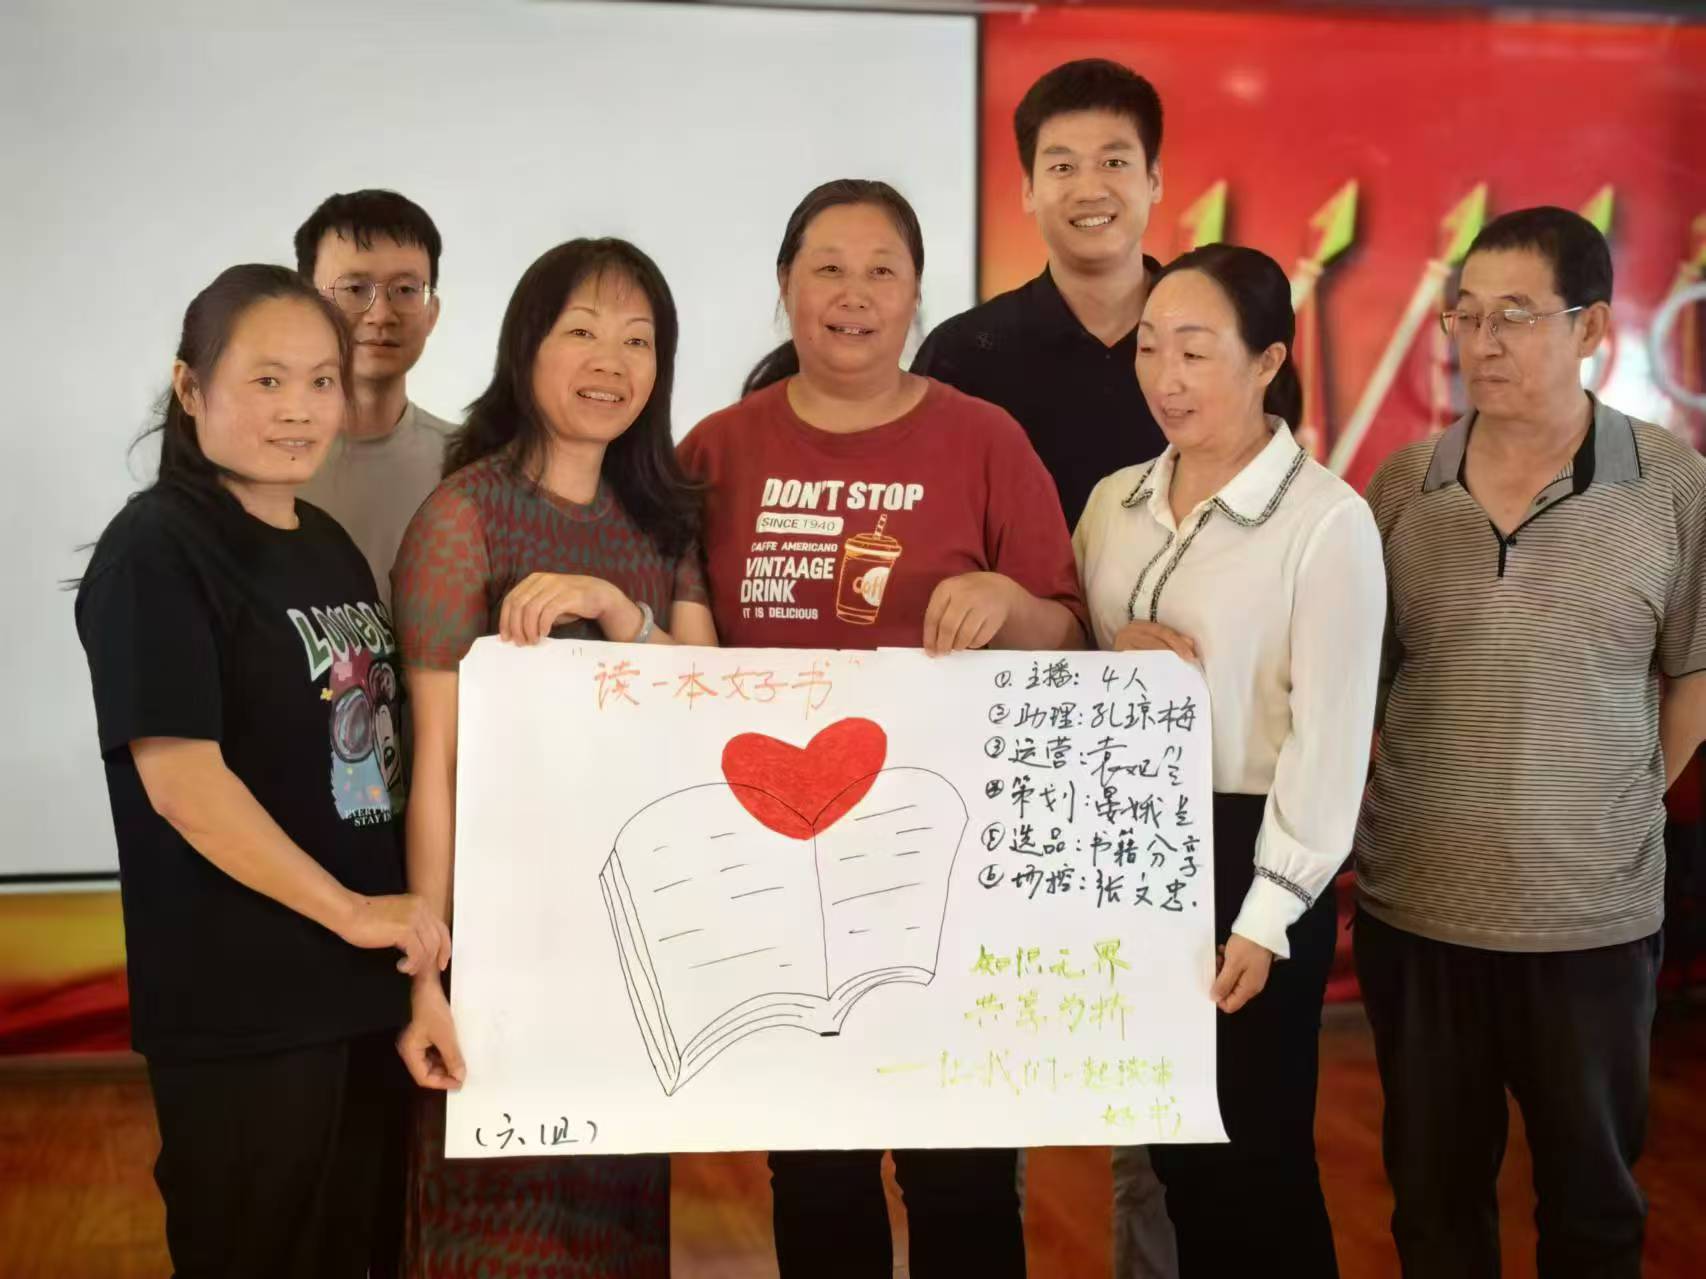 DON'T STOP
SINCE 1940
CAFFE AMERICANO
VINTAAGE
DRINK
IT IS DELICIOUS
"读一本好书"
①.主播：4人
②助理：孔琼梅
③运营：袁妲兰
④策划：晏娥兰
⑤选品：书籍分享
⑥场控：张文忠.
知识无界
共享为桥
——让我们一起读本
好书
（六组）